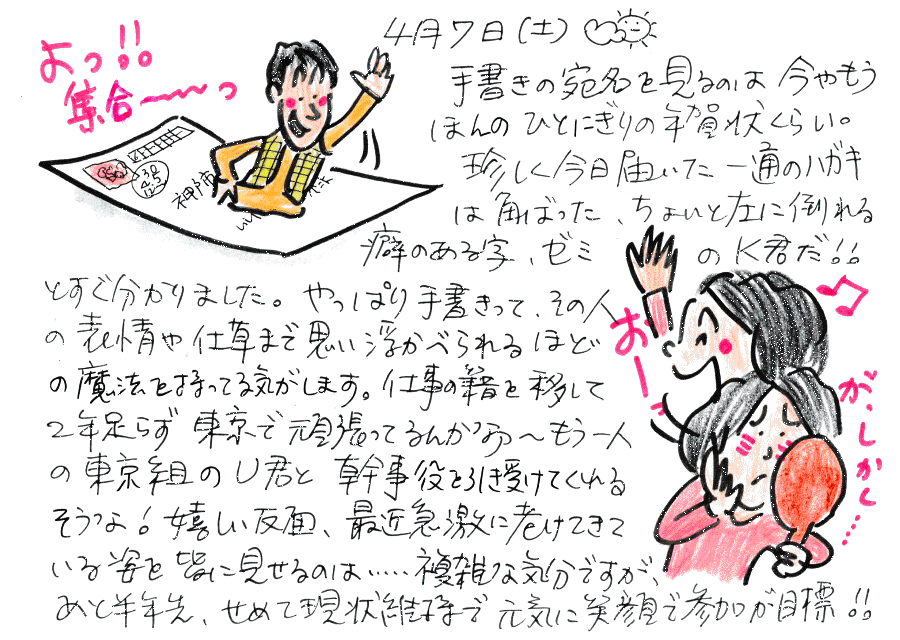 4月7日(土)
よっ!!
集合〜〜っ
神戸市
手書きの宛名を見るのは 今やもう
ほんの ひとにぎりの年賀状くらい。
珍しく今日届いた 一通のハガキ
は 角ばった、ちょいと左に倒れる
癖のある字、ゼミ の K君だ!!
とすぐ分かりました。 やっぱり手書きって、その人
の 表情や 仕草まで思い浮かべられるほど
の魔法を持ってる気がします。仕事の籍を移して
2年足らず 東京で頑張ってるんかなぁ〜もう一人
の東京組のU君と 幹事役を引き受けてくれる
そうな! 嬉しい反面、最近急激に老けてきて
いる姿を 皆に見せるのは……複雑な気分ですが、
あと半年先、せめて現状維持まで 元気に笑顔で参加が目標!!
おーっ
が、しかし…